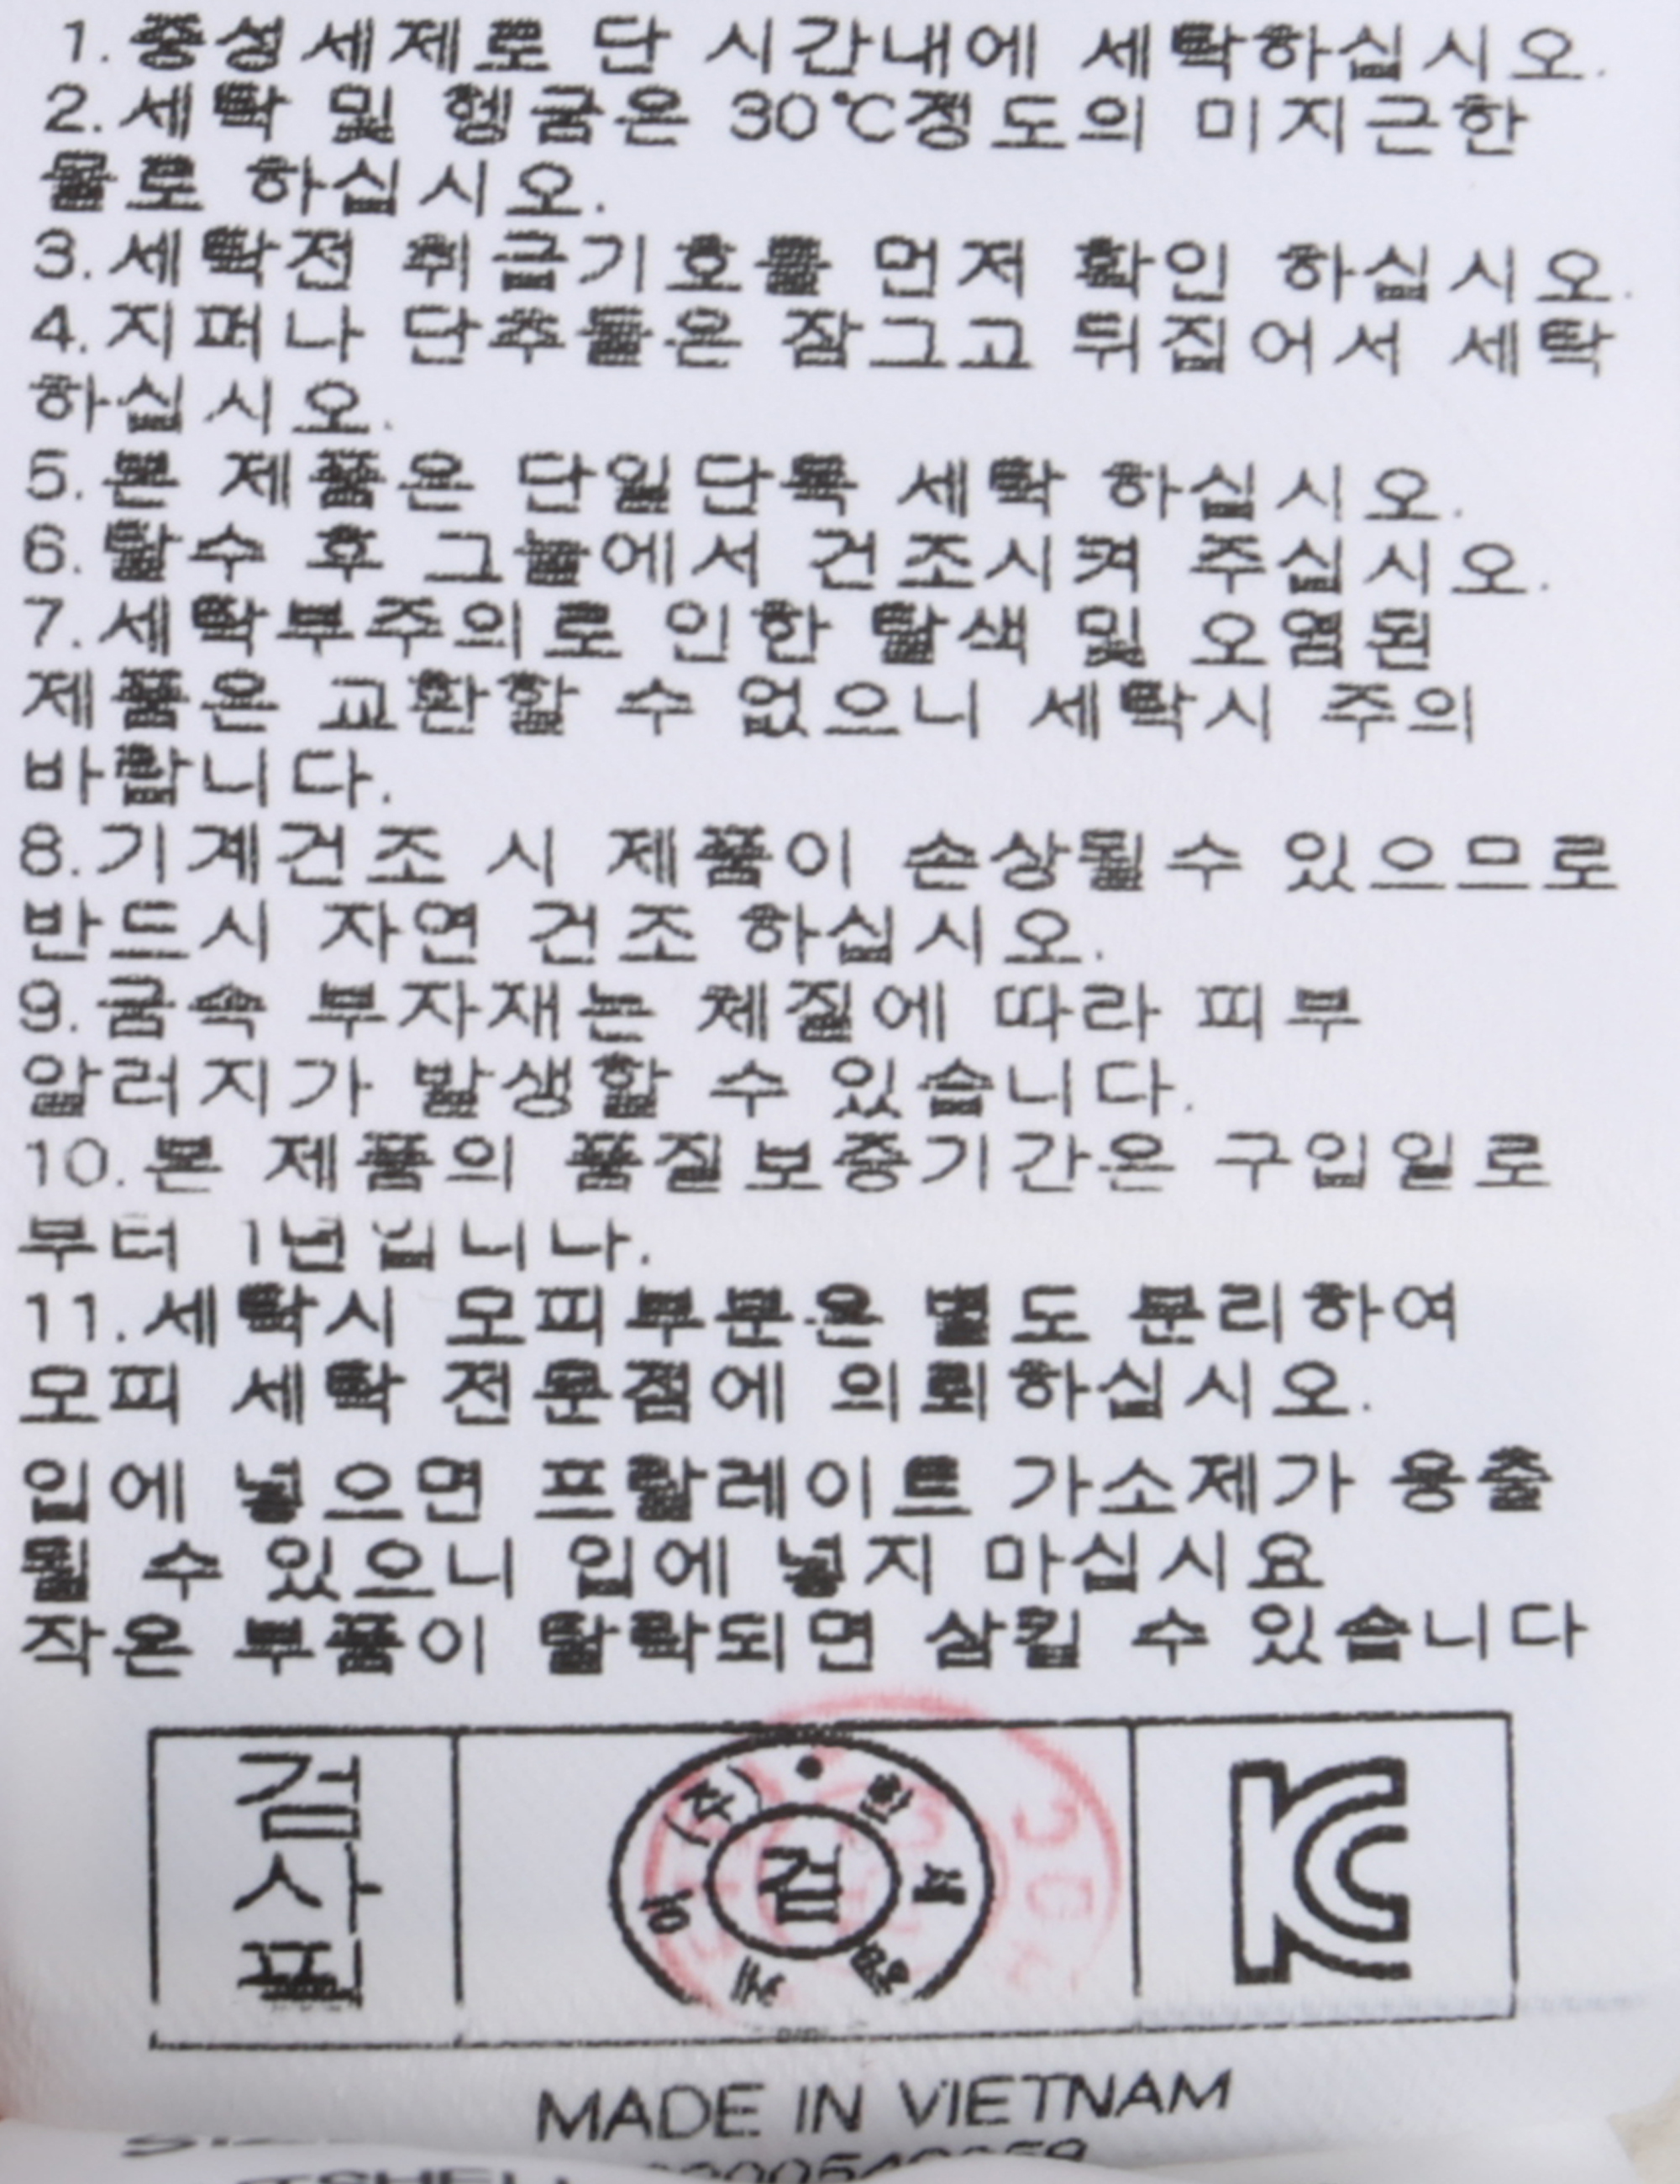 1.중성세제로 단 시간내에 세탁하십시오.
2.세탁 및 헹굼은 30℃정도의 미지근한
물로 하십시오.
3.세탁전 취급기호를 먼저 확인 하십시오.
4.지퍼나 단추들은 잠그고 뒤집어서 세탁
하십시오.
5.본 제품은 단일단독 세탁 하십시오.
6.탈수 후 그늘에서 건조시켜 주십시오.
7.세탁부주의로 인한 탈색 및 오염된
제품은 교환할 수 없으니 세탁시 주의
바랍니다.
8.기계건조 시 제품이 손상될수 있으므로
반드시 자연 건조 하십시오.
9.금속 부자재는 체질에 따라 피부
알러지가 발생할 수 있습니다.
10.본 제품의 품질보증기간은 구입일로
부터 1년입니다.
11.세탁시 모피부분은 별도 분리하여
모피 세탁 전문점에 의뢰하십시오.
입에 넣으면 프탈레이트 가소제가 용출
될 수 있으니 입에 넣지 마십시요
작은 부품이 탈락되면 삼킬 수 있습니다
검사필
(주)
검
KC
MADE IN VIETNAM